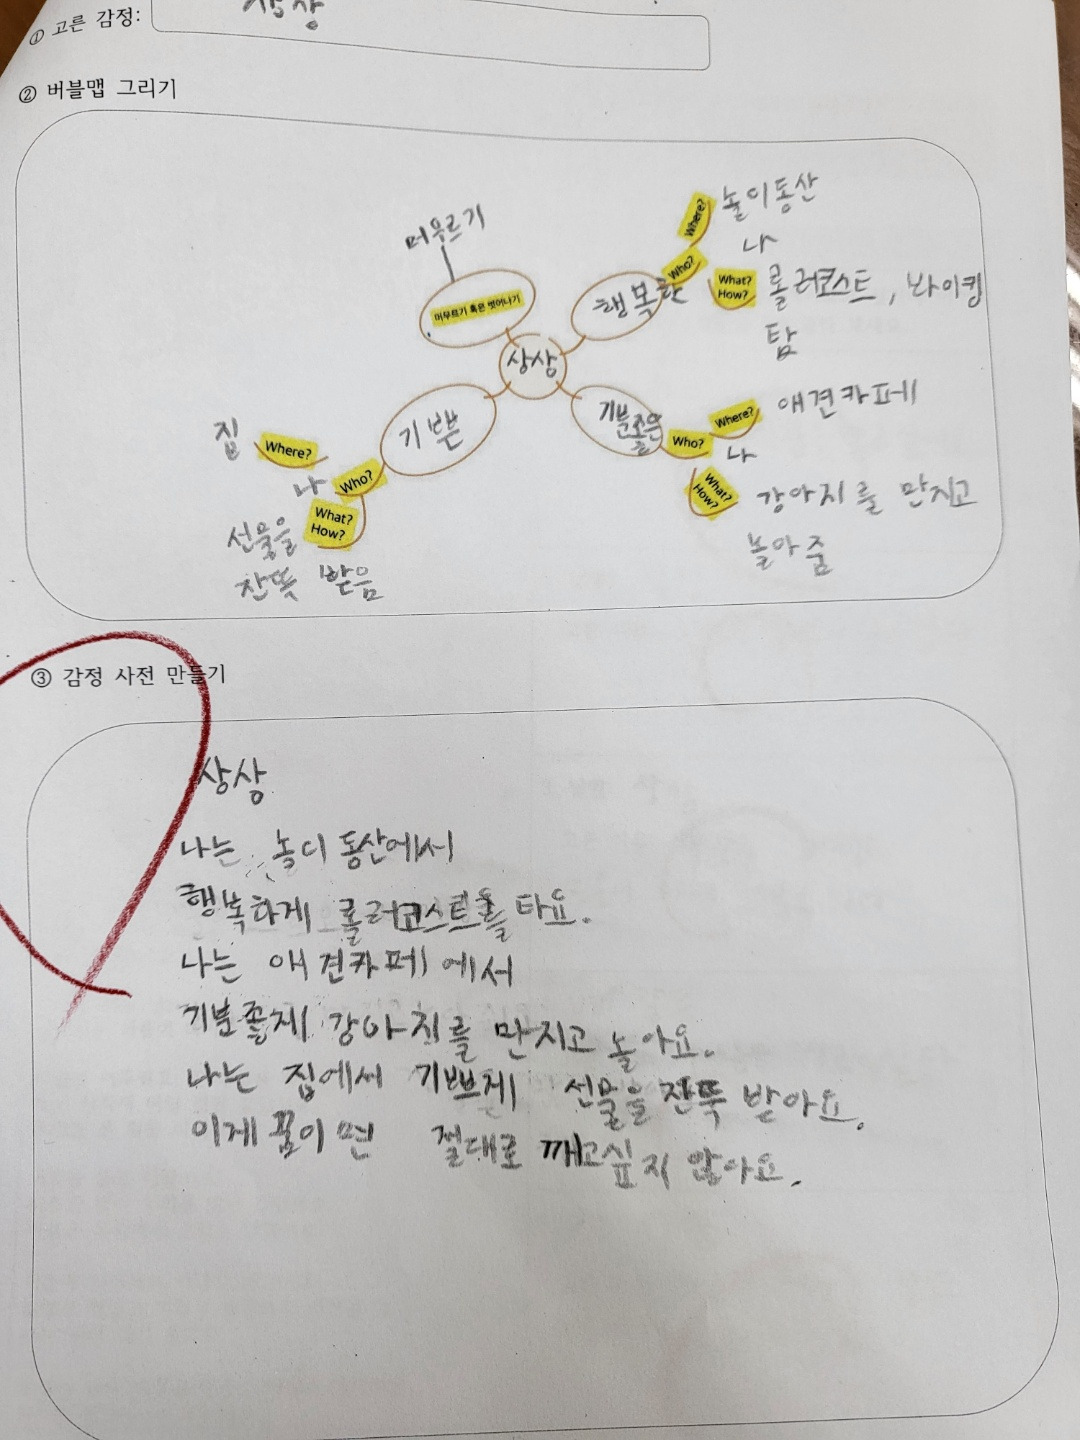 ① 고른 감정:
상상
② 버블맵 그리기
머무르기
머무르기 혹은 벗어나기
상상
행복한
Where?
놀이동산
Who?
나
What?
How?
롤러코스트, 바이킹
탐
기분
좋은
Where?
애견카페
Who?
나
What?
How?
강아지를 만지고
놀아줌
기쁜
집
Where?
나
Who?
What?
How?
선물을
잔뜩 받음
③ 감정 사전 만들기
상상
나는 놀이 동산에서
행복하게 롤러코스트를 타요.
나는 애견카페에서
기분좋게 강아지를 만지고 놀아요.
나는 집에서 기쁘게 선물을 잔뜩 받아요.
이게 꿈이면 절대로 깨고싶지 않아요.